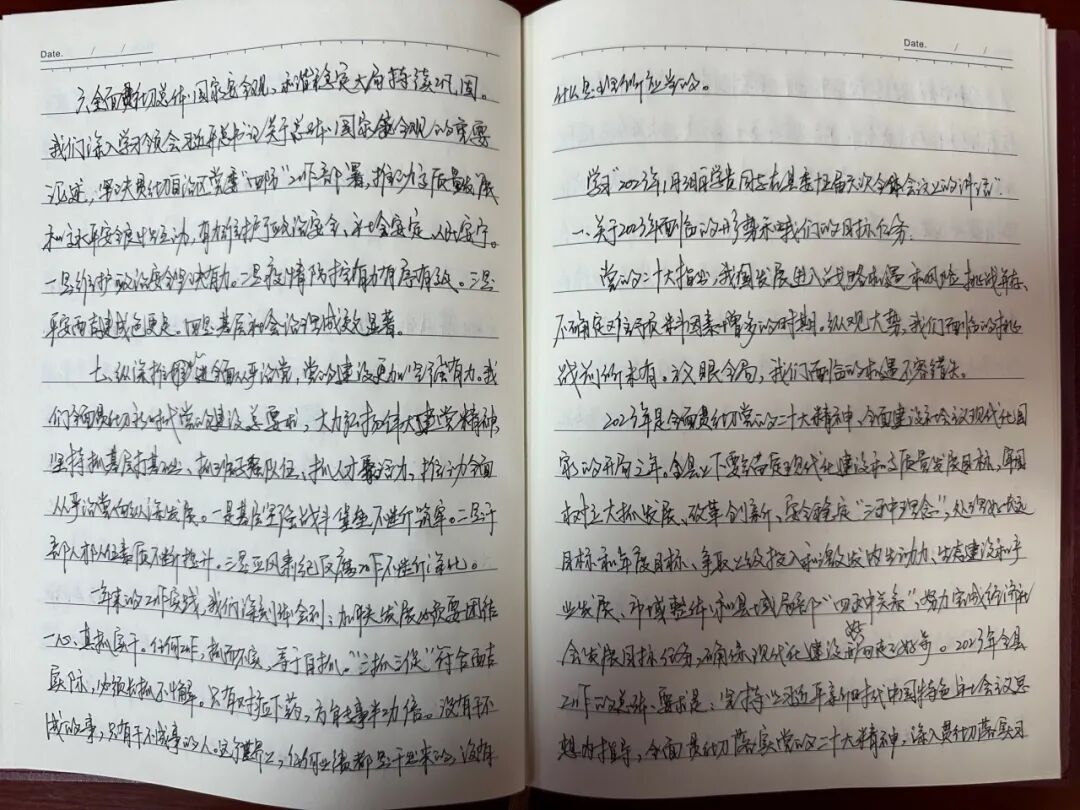 Date. / /
六、全面贯彻总体国家安全观，和谐稳定大局持续巩固。
我们深入学习领会习近平总书记关于总体国家安全观的重要
论述，坚决贯彻自治区党委“四防”工作部署，推动高质量发展
和高水平安全良性互动，有力维护了政治安全、社会安定、人民安宁。
一是维护政治安全坚决有力。二是疫情防控有力有序有效。三是
平安西吉建成色更足。四是基层社会治理成效显著。
七、纵深推进全面从严治党，党的建设更加坚强有力。我
们全面贯彻新时代党的建设总要求，大力弘扬伟大建党精神
坚持抓基层打基础、抓班子带队伍、抓人才聚活力，推动全面
从严治党向纵深发展。一是基层坚强战斗堡垒不断筑牢。二是干
部人才队伍素质不断提升。三是正风肃纪反腐工作不断深化。
一年来的工作实践，我们深刻体会到：加快发展必须要团结
一心、真抓实干。任何工作，抓而不实，等于白抓。“三抓三促”符合西吉
实际，必须长抓不懈。只有对症下药，方能事半功倍。没有干不
成的事，只有干不成事的人。这个世界上，任何业绩都是干出来的，没有
Date. / /
什么是理所应当的。
学习“2023年1月3日王学军同志在县委十五届六次全体会议上的讲话”
一、关于2023年面临的形势和我们的目标任务。
党的二十大指出，我国发展进入战略机遇和风险挑战并存、
不确定难预料因素增多的时期。纵观大势，我们面临的挑
战前所未有。放眼全局，我们面临的机遇不容错失。
2023年是全面贯彻党的二十大精神、全面建设社会主义现代化国
家的开局之年。全县上下要锚定现代化建设和高质量发展目标，牢固
树立大抓发展、改革创新、安全稳定“三种理念”，处理好长远
目标和年度目标、争取上级投入和激发内生动力、生态建设和产
业发展、市域整体和县域局部“四种关系”，努力完成经济社
会发展目标任务，确保现代化建设开好局起好步。2023年全县
工作的总体要求是：坚持以习近平新时代中国特色社会主义思
想为指导，全面贯彻落实党的二十大精神，深入贯彻落实习